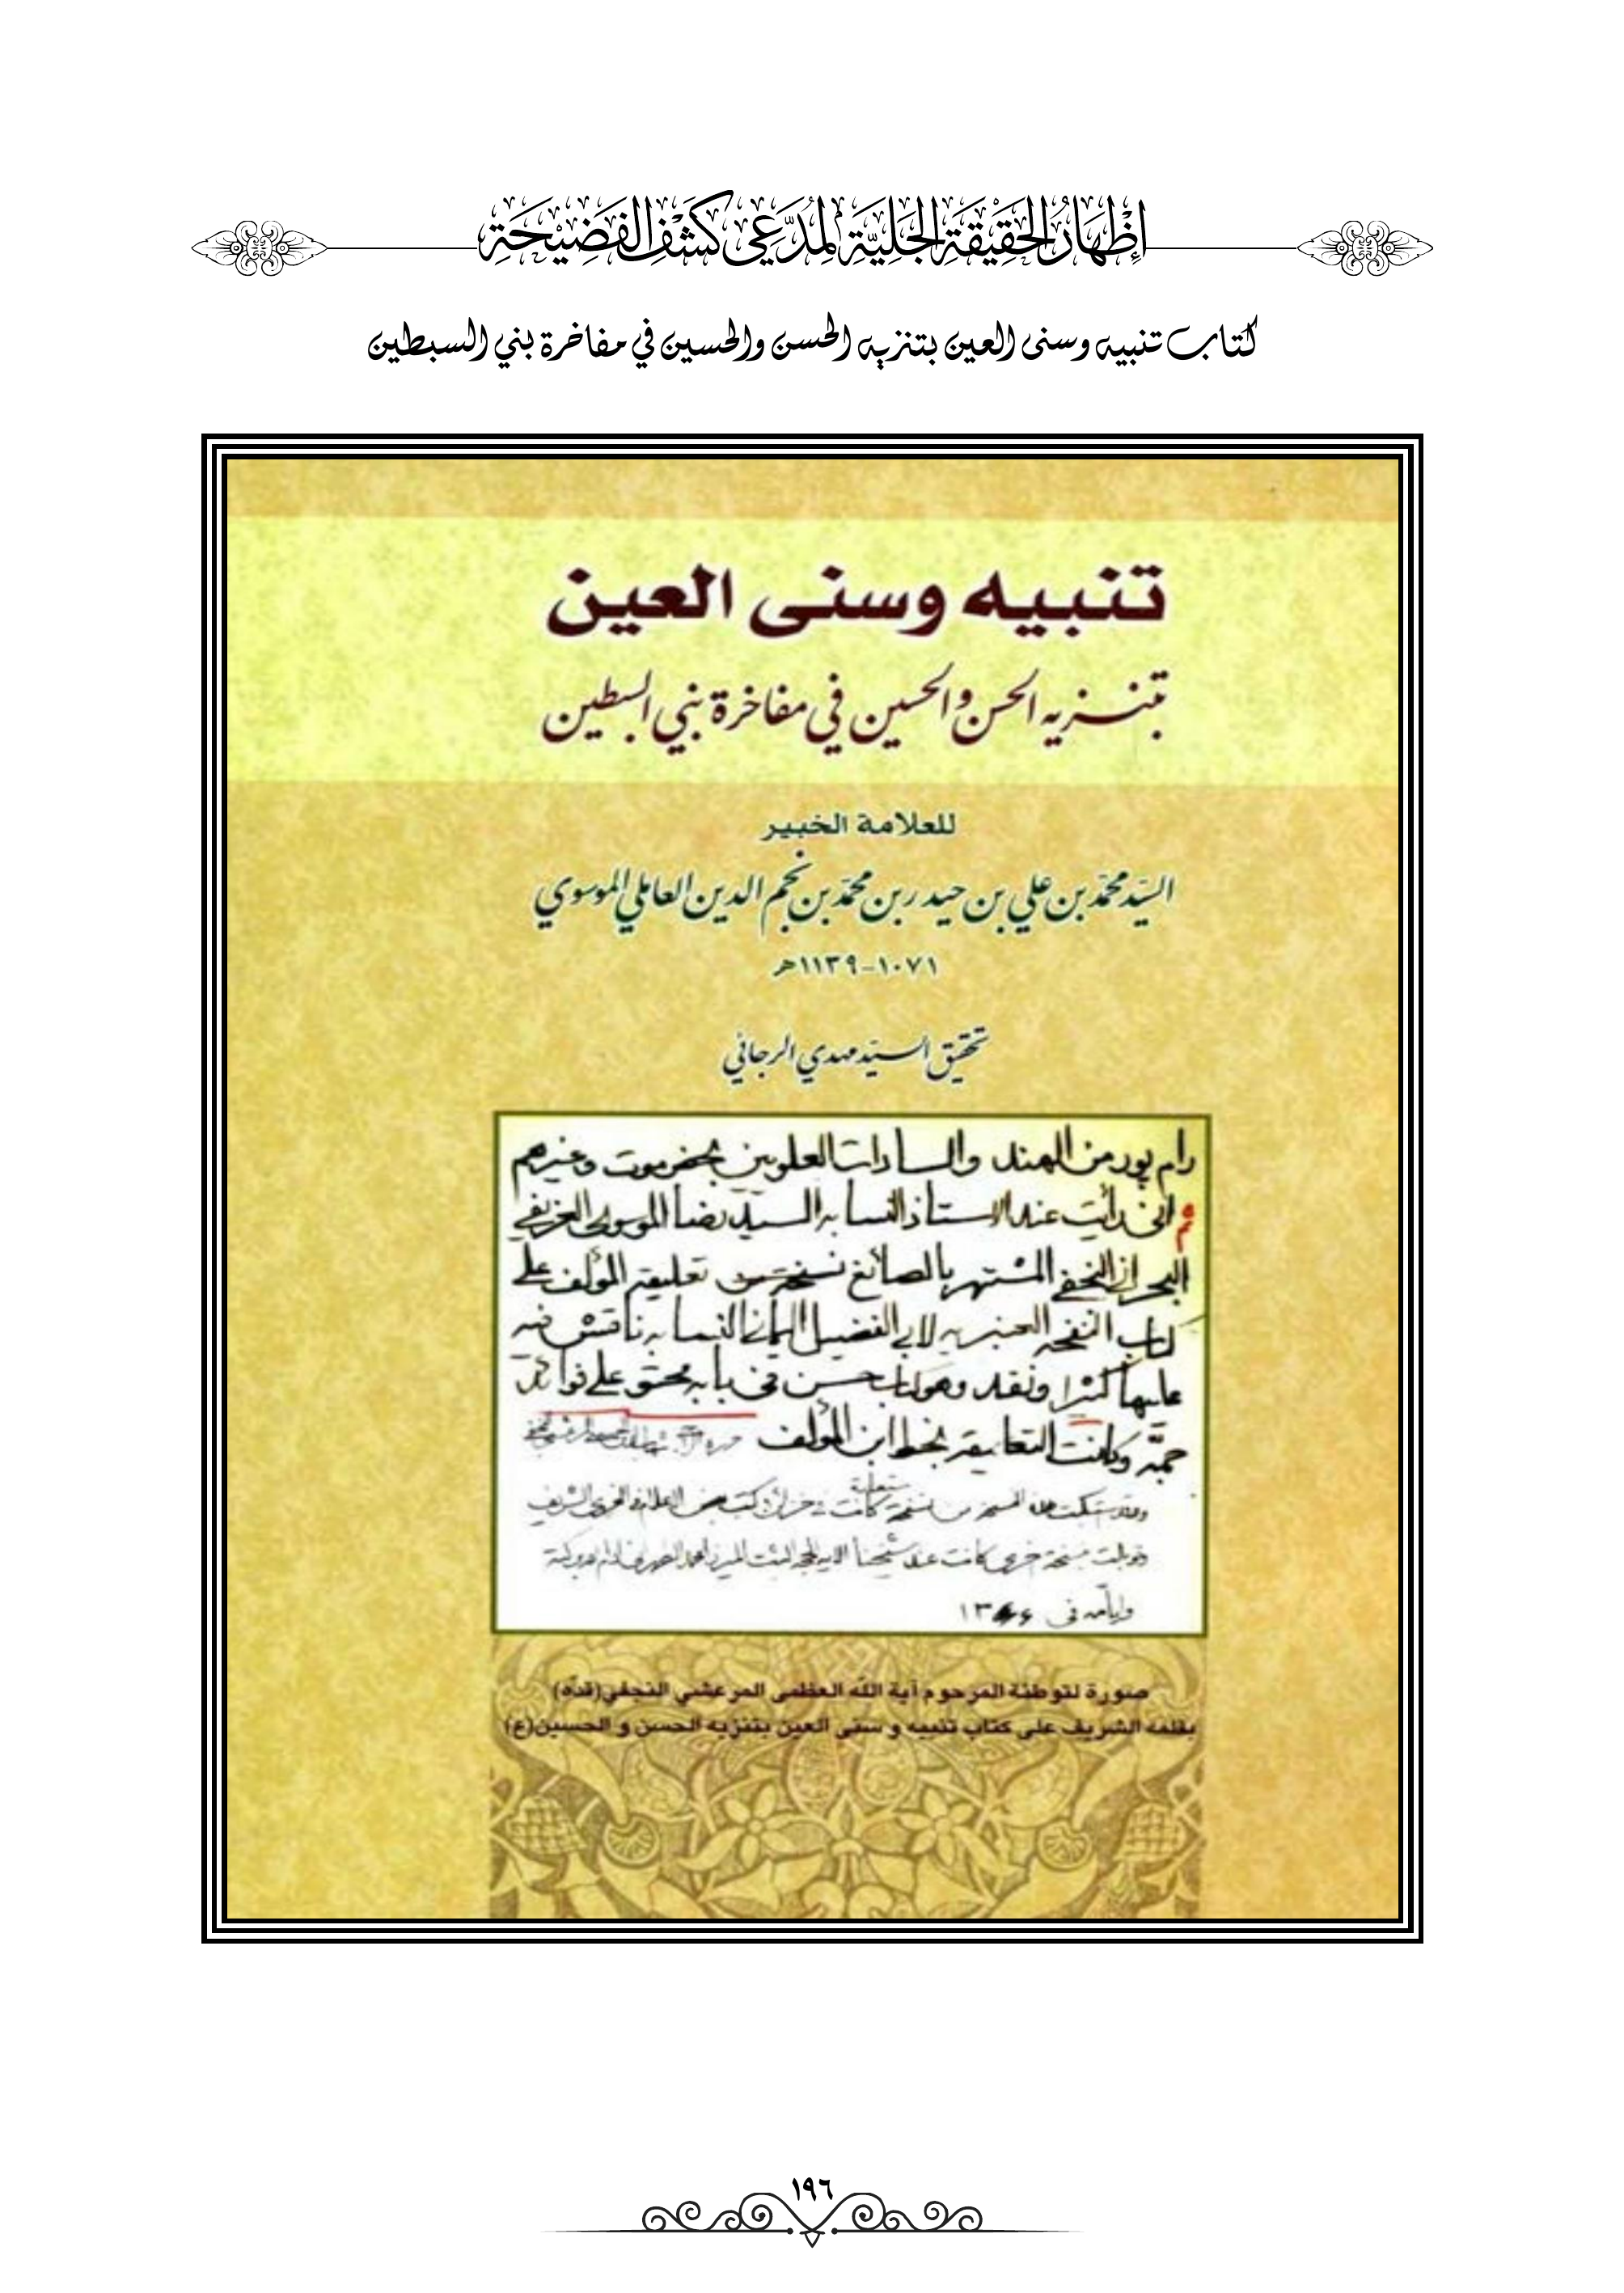 إِظْهَارُ الحَقِيْقَةِ الجَلِيَّةِ لِمُدَّعِي كَشْفِ الفَضِيْحَةِ
كتاب تنبيه وسنى العين بتنزيه الحسن والحسين في مفاخرة بني السبطين
تنبيه وسنى العين
بتنزيه الحسن والحسين في مفاخرة بني السبطين
للعلامة الخبير
السيّد محمّد بن علي بن حيدر بن محمّد بن نجم الدين العاملي الموسوي
١٠٧١-١١٣٩هـ
تحقيق السيّد مهدي الرجائي
رام پور من الهند والسادات العلويين بحضرموت وغيرهم
ثم انى رأيت عند الاستاذ النسابه السيد رضا الموسوى الغريفي
البحرانى النجفي المشتهر بالصائغ نسخة من تعليقة المؤلف على
كتاب النفحه العنبريه لابي الفضيل اليمانى النسابه ناقش فيه
عليها كثيرا ونقد وهو كتاب حسن في بابه محتو على فوائد
جمّه وكانت التعليقه بخط ابن المؤلف
من نسخة كانت في
نسخة اخرى كانت عند شيخنا
وايامه في
صورة لتوطئة المرحوم آية الله العظمى المرعشي النجفي(قدّه)
بقلمه الشريف على كتاب تنبيه و سنى العين بتنزيه الحسن و الحسين(ع)
١٩٦